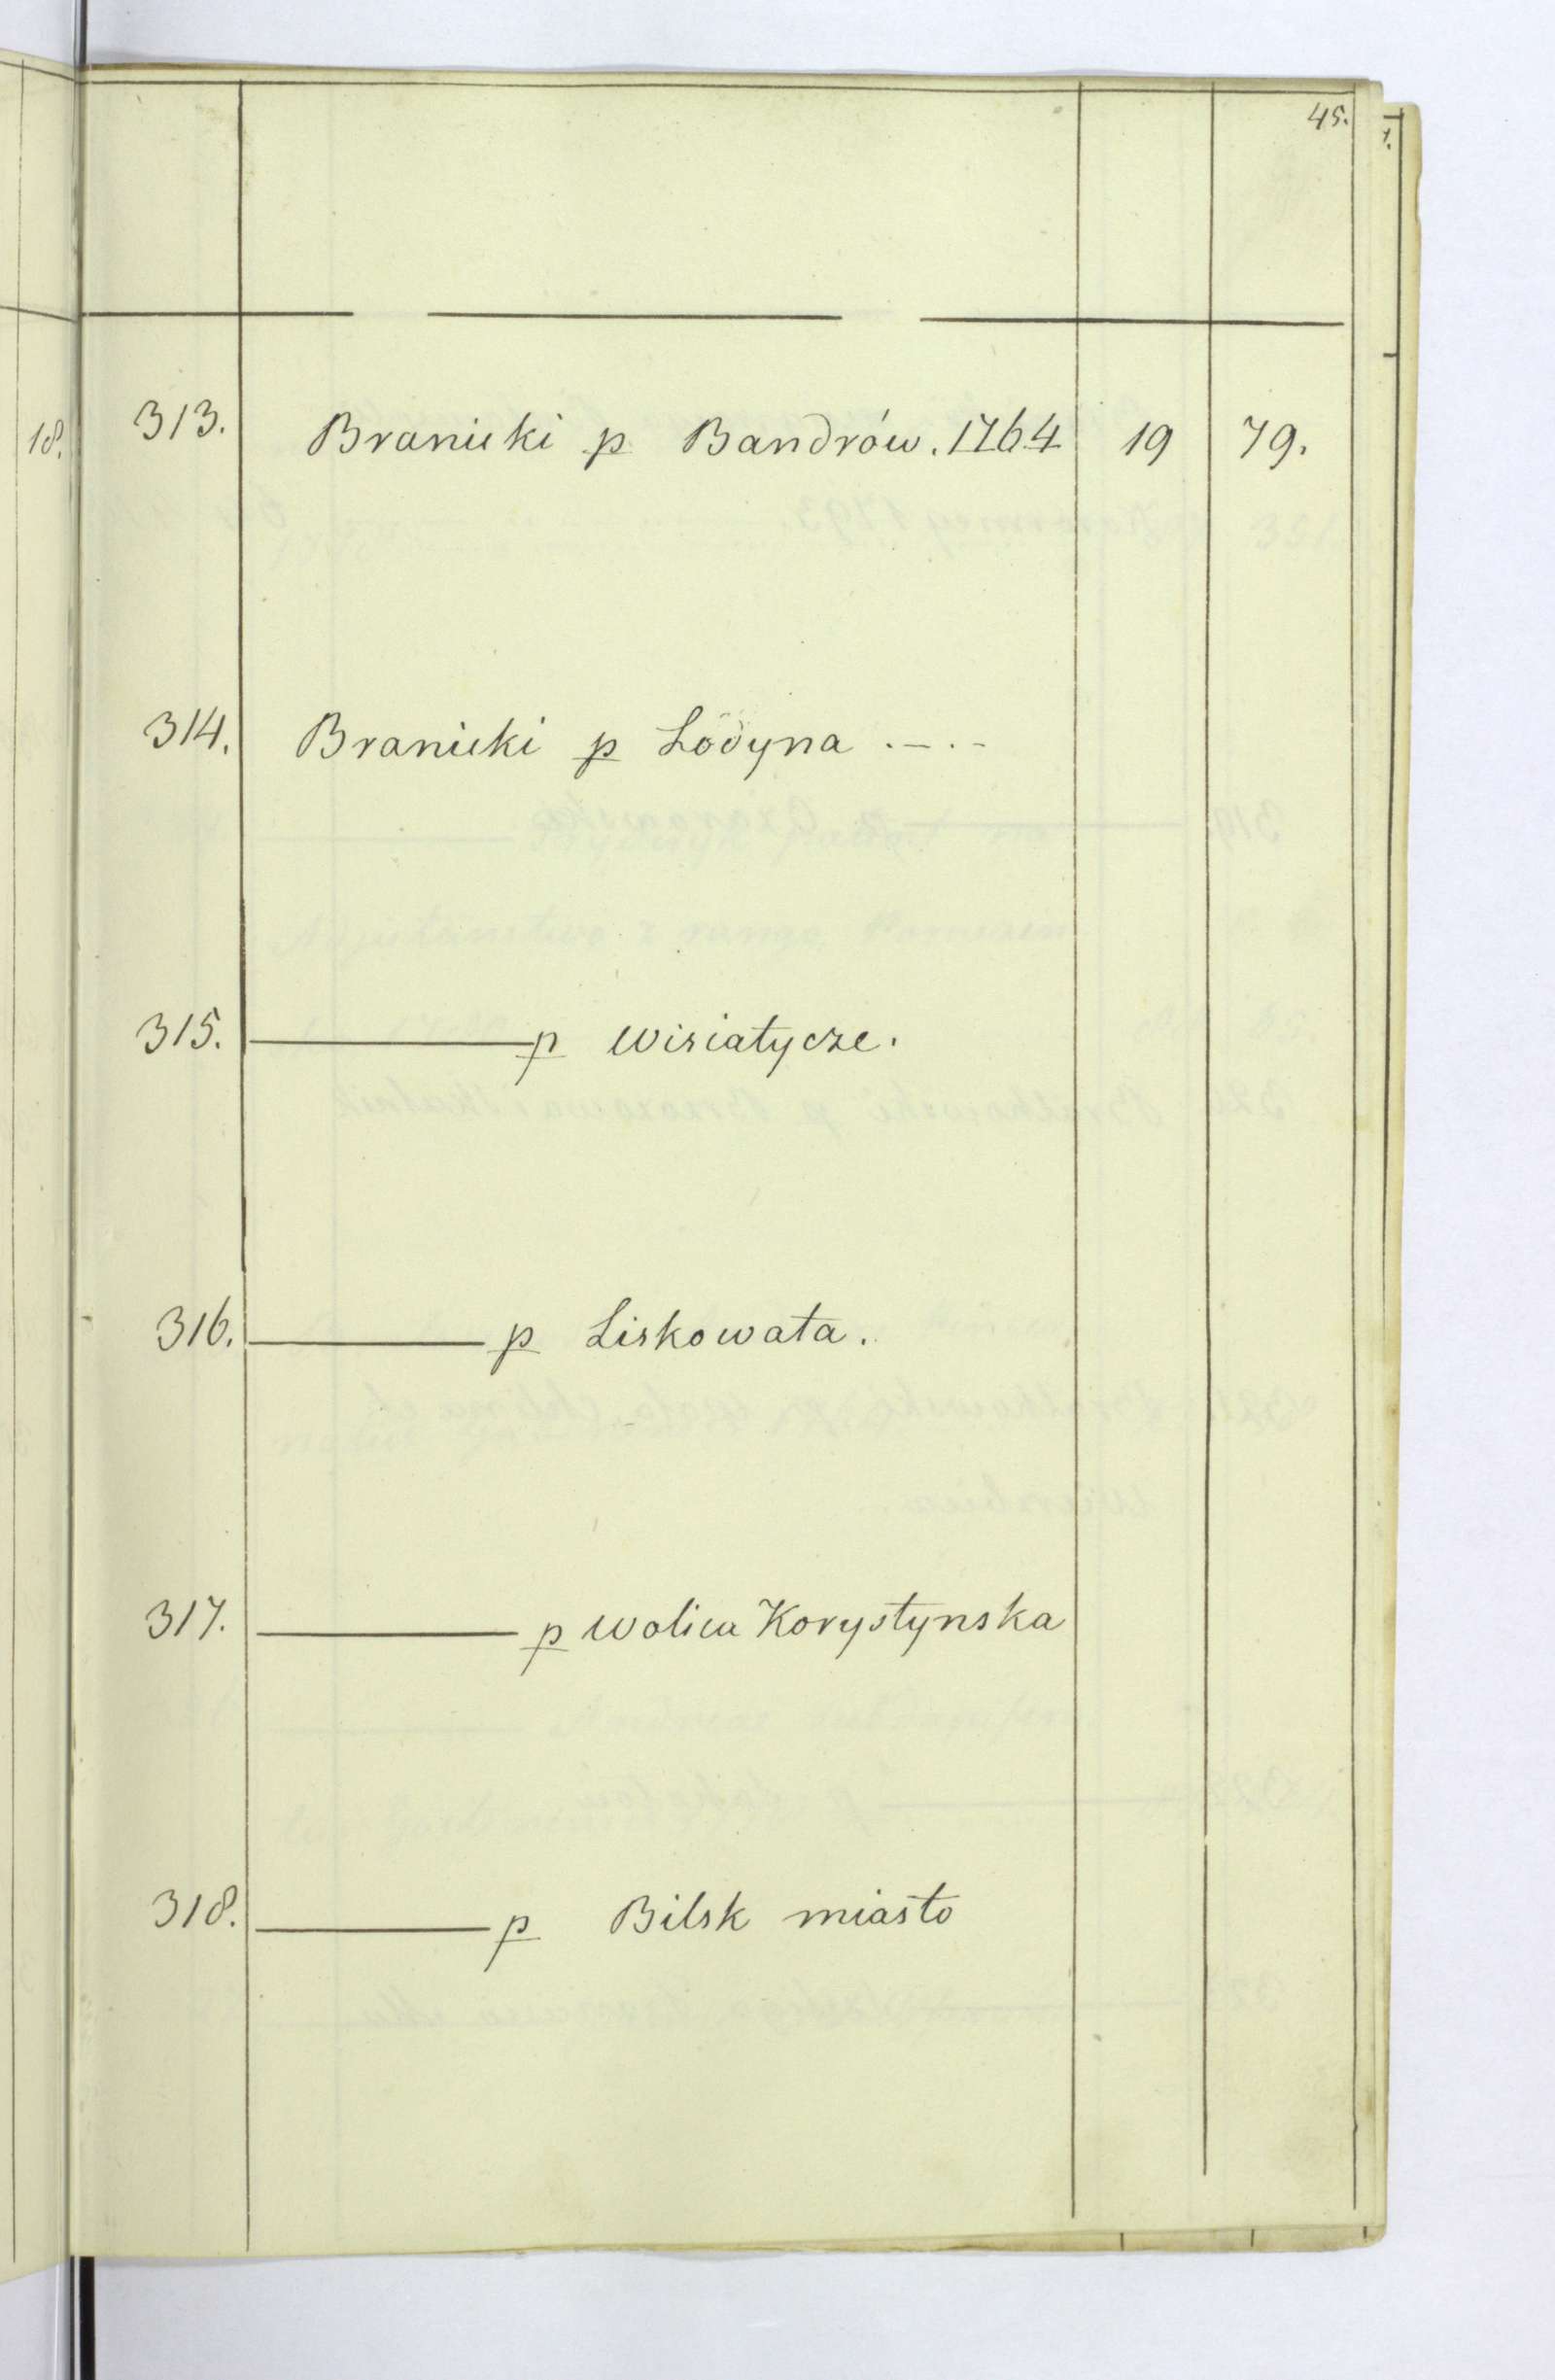 45.
1.
18.
313. Branicki p Bandrów. 1764 19 79.
314. Branicki p Lodyna .-.-
315. p Wisiatycze.
316. p Liskowata.
317. p Wolica Korystynska
318. p Bilsk miasto